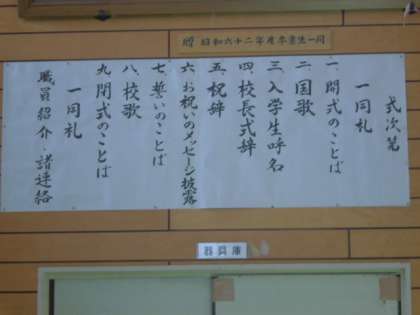 贈 昭和六十二年度卒業生一同
式次第
一同礼
一 開式のことば
二 国歌
三 入学生呼名
四 校長式辞
五 祝辞
六 お祝いのメッセージ披露
七 誓いのことば
八 校歌
九 閉式のことば
一同礼
職員紹介・諸連絡
器具庫